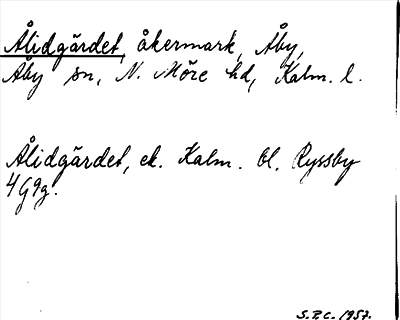 Ålidgärdet, åkermark, Åby,
Åby sn, N. Möre hd, Kalm. l.
Ålidgärdet, ek. Kalm. bl. Ryssby
4G9g.
S.P.C. 1957.